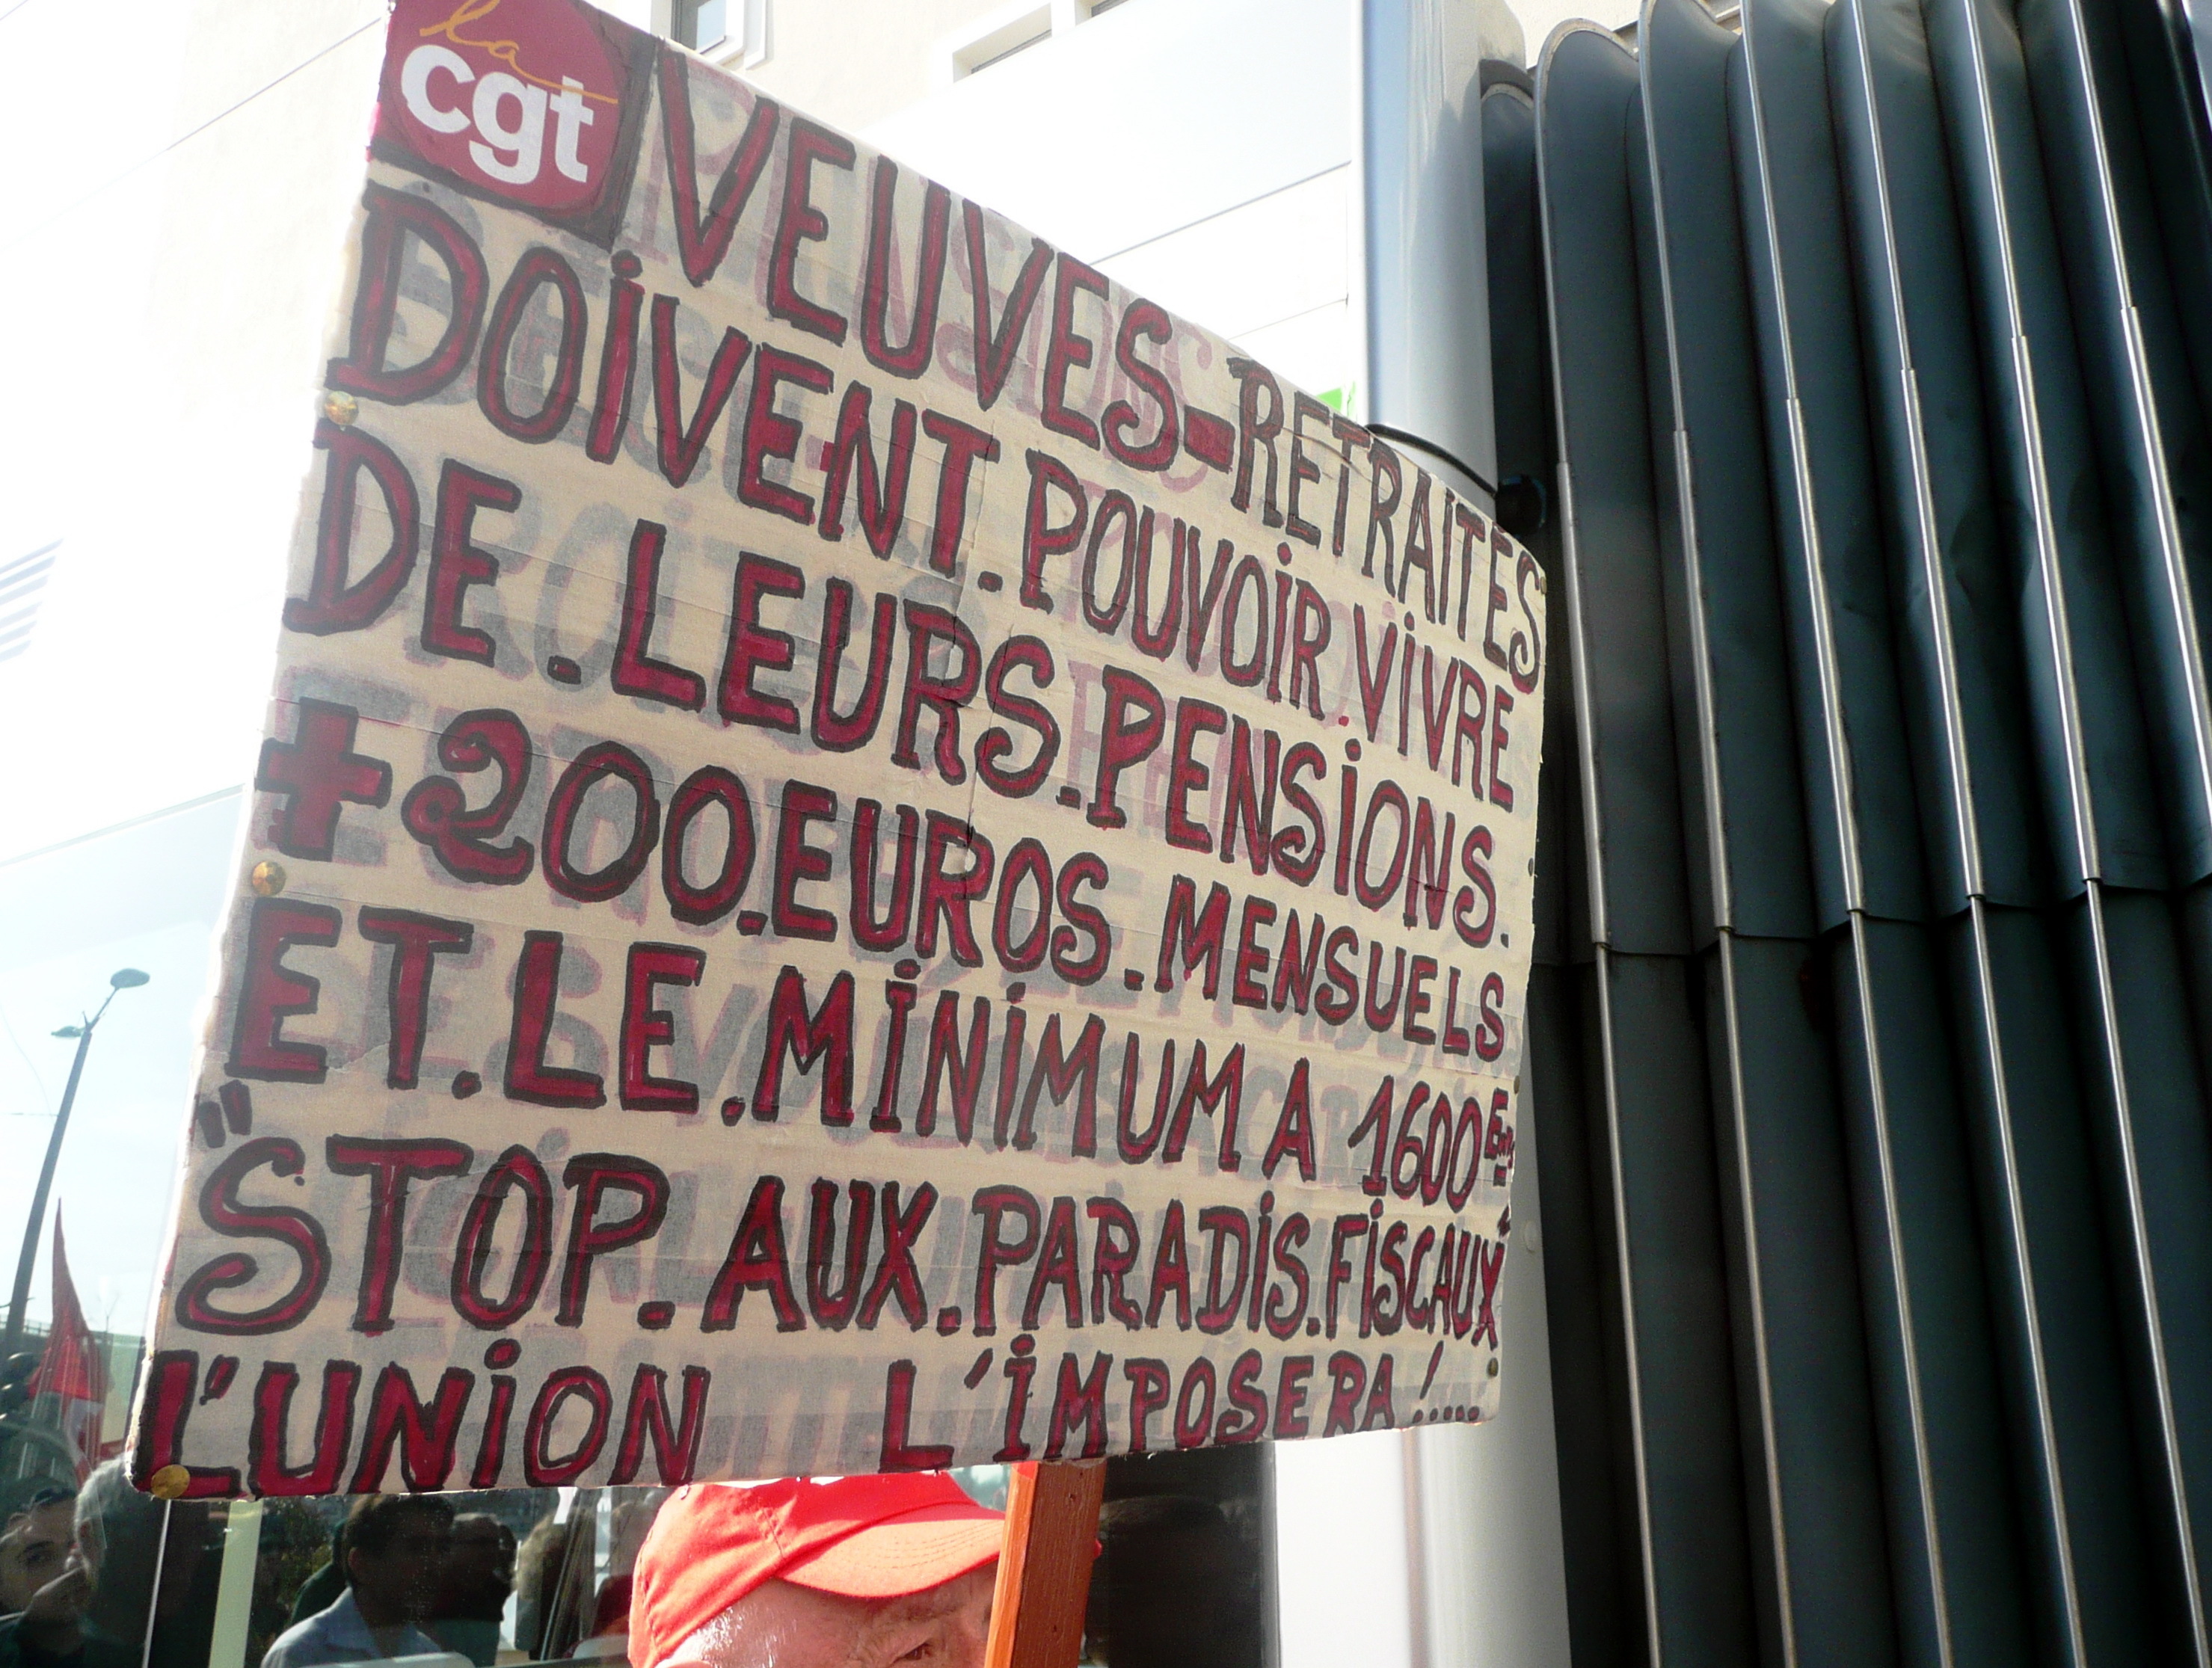 la
cgt
VEUVES-RETRAITES
DOIVENT.POUVOIR.VIVRE
DE.LEURS.PENSIONS.
+200.EUROS.MENSUELS
ET.LE.MINIMUM A 1600 Euros
"STOP.AUX.PARADIS.FISCAUX"
L'UNION L'IMPOSERA!.....